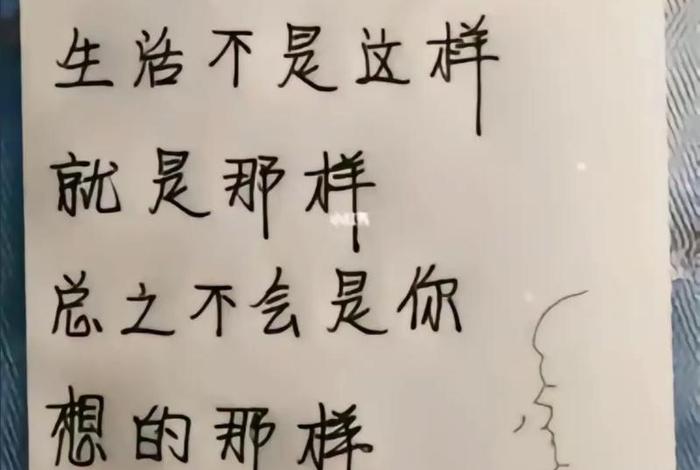 生活不是这样
就是那样
小红书
总之不会是你
想的那样